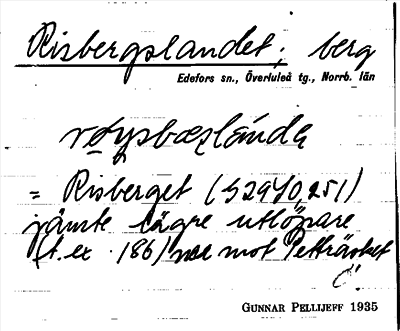 Risbergslandet; berg
Edefors sn., Överluleå tg., Norrb. län
røysbæzlánda
= Risberget (S2940, 251)
jämte lägre utlöpare
(t. ex. 186) mot Petträsket
GUNNAR PELLIJEFF 1935